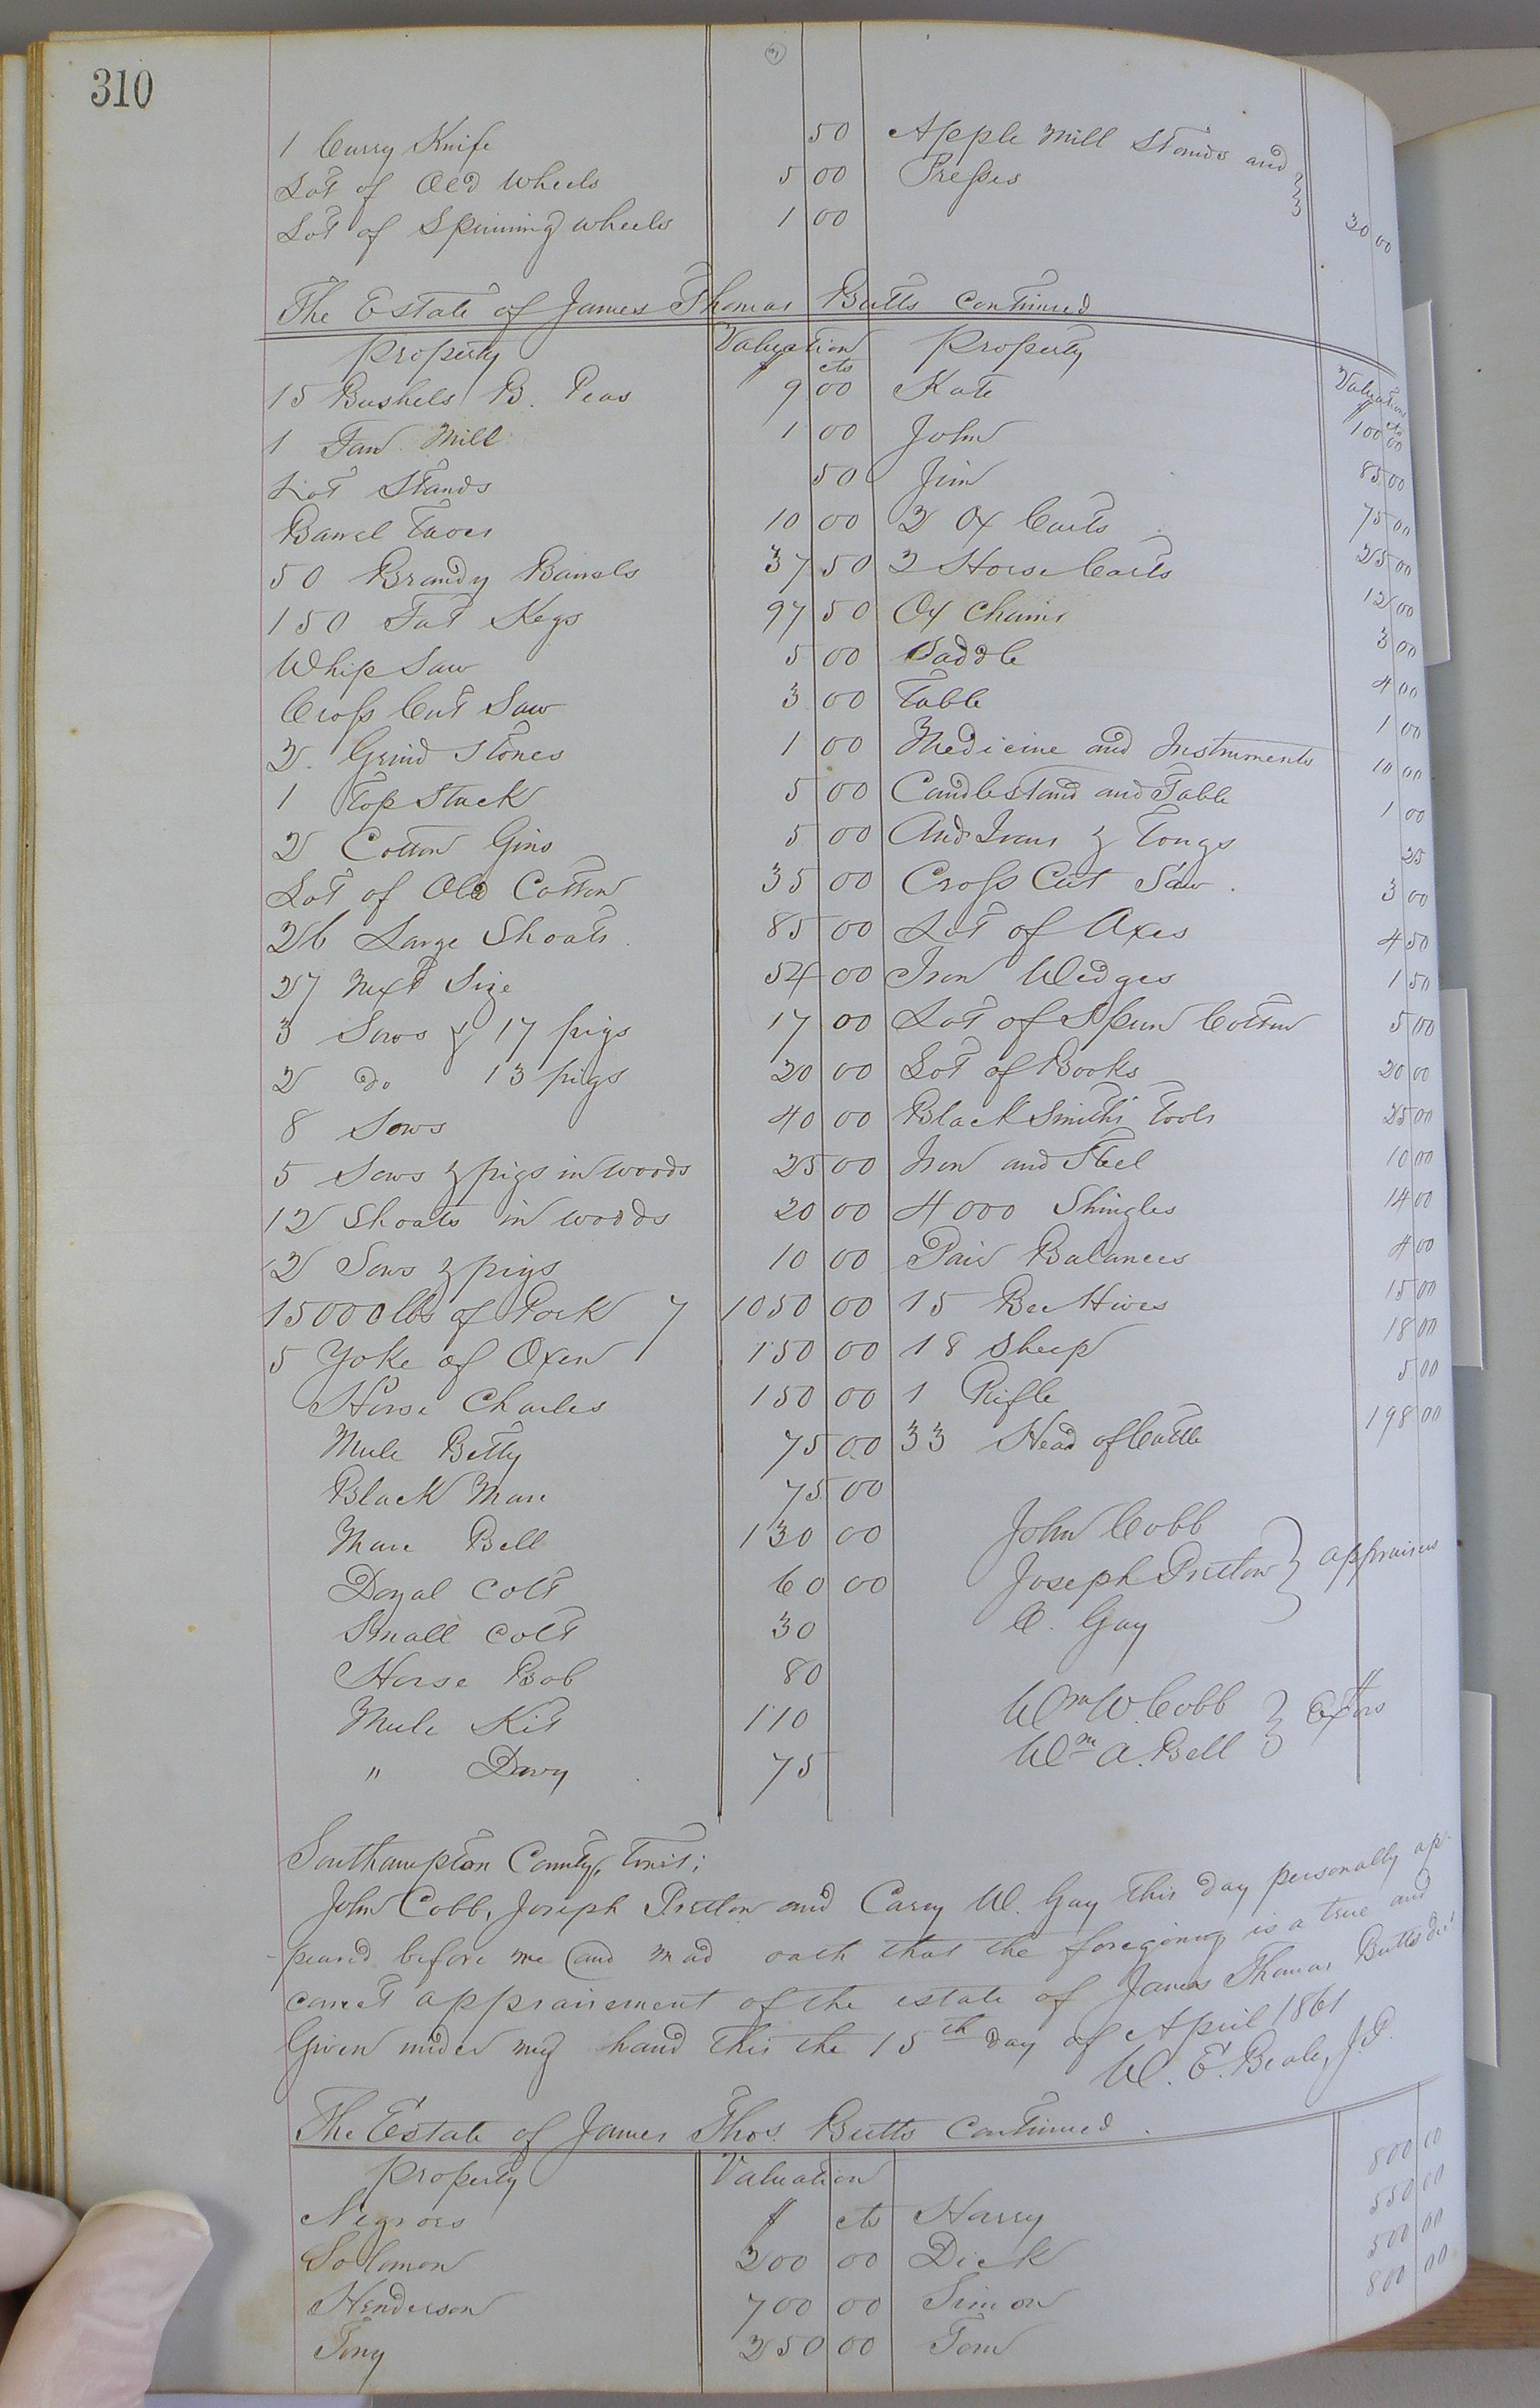 310
1 Curry Knife 50 Apple Mill Stands and
Lot of Old Wheels 5 00 Presses
Lot of Spinning wheels 1 00 30 00
The Estate of James Thomas Butts Continued
Property Valuation Property Valuation
$ cts $ cts
15 Bushels B. Peas 9 00 Kate 100 00
1 Fan Mill 1 00 John 85 00
Lot Stands 50 Jim 75 00
Barrel 10 00 2 Ox Carts 25 00
50 Brandy Barrels 37 50 2 Horse Carts 12 00
150 Fat Kegs 97 50 Ox Chains 3 00
Whip Saw 5 00 Saddle 4 00
Cross Cut Saw 3 00 Table 1 00
2 Grind Stones 1 00 Medicine and Instruments 10 00
1 Top Stack 5 00 Candlestand and Table 1 00
2 Cotton Gins 5 00 And Irons & Tongs 25
Lot of Old Cotton 35 00 Cross Cut Saw 3 00
26 Large Shoats 85 00 Lot of Axes 4 50
27 Next Size 54 00 Iron Wedges 1 50
3 Sows & 17 pigs 17 00 Lot of Spun Cotton 5 00
2 do 13 pigs 20 00 Lot of Books 20 00
8 Sows 40 00 Black Smiths Tools 25 00
5 Sows & pigs in woods 25 00 Iron and Steel 10 00
12 Shoats in woods 20 00 4000 Shingles 14 00
2 Sows & pigs 10 00 Pair Balances 4 00
15000 lbs of Pork 7 1050 00 15 Bee Hives 15 00
5 Yoke of Oxen 150 00 18 Sheep 18 00
Horse Charles 150 00 1 Rifle 5 00
Mule Betty 75 00 33 Head of Cattle 198 00
Black Mare 75 00
Mare Bell 130 00 John Cobb
Doyal Colt 60 00 Joseph Pretlow appraisers
Small Colt 30 C. Gay
Horse Bob 80
Mule Kit 110 Wm W. Cobb
" Davy 75 Wm A. Bell Exttors
Southampton County, towit;
John Cobb, Joseph Pretlow and Carey W. Gay this day personally ap-
-peared before me and mad oath that the foregoing is a true and
correct appraisement of the estate of James Thomas Butts decd
Given under my hand this the 15th day of April 1861
W. E. Beale, J.P.
The Estate of James Thos. Butts Continued
Property Valuation
Negroes $ cts Harry 800 00
Solomon 200 00 Dick 550 00
Henderson 700 00 Simon 500 00
Tony 250 00 Tom 800 00